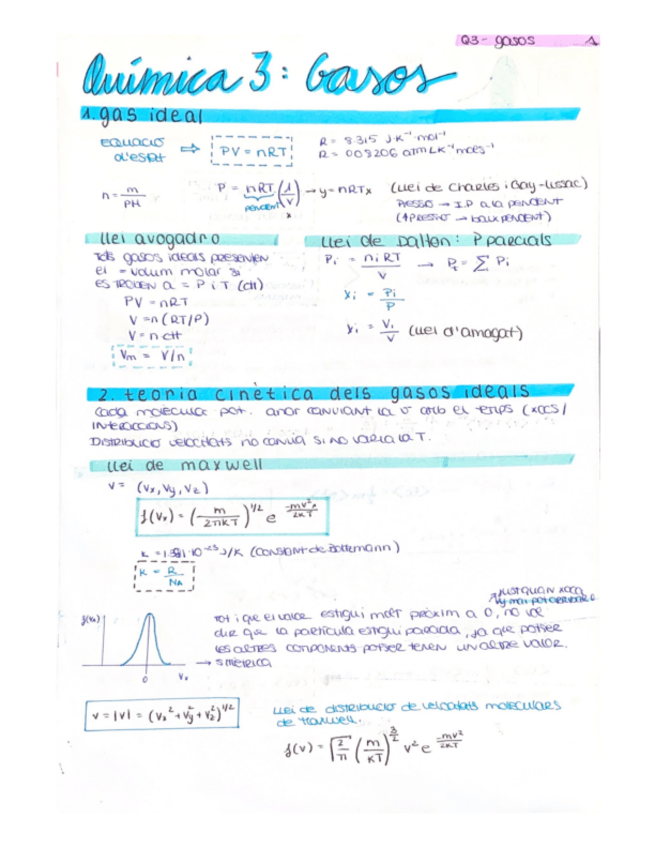 Q3 - gasos 1
Química 3: Gasos
1. gas ideal
EQUACIÓ D'ESTAT ⇒ PV = nRT
R = 8'315 J·K⁻¹·mol⁻¹
R = 0'08206 atm L K⁻¹ mols⁻¹
n = m/PM
P = nRT (1/V) → y = nRTx (Llei de Charles i Gay-Lussac)
PENDENT x
PRESSIÓ → I.P a la PENDENT
(↑PRESSIÓ → baix PENDENT)
llei avogadro
Tots gasos ideals presenten
el = volum molar si
es troben a = P i T (ctt)
PV = nRT
V = n(RT/P)
V = n·ctt
Vm = V/n
Llei de Dalton: P parcials
Pi = niRT/V → Pt = Σ Pi
xi = Pi/P
xi = Vi/V (Llei d'amagat)
2. teoria cinètica dels gasos ideals
Cada molècula pot anar canviant la v amb el temps (xocs/
interaccions)
Distribució velocitats no canvia si no varia la T.
llei de maxwell
v = (vx, vy, vz)
f(vx) = (m/2πKT)^1/2 e^-mvx²/2KT
K = 1'381·10⁻²³ J/K (constant de Boltzmann)
K = R/NA
Just quan xoca
f(vx)
0 vx
Tot i que el valor estigui molt pròxim a 0, no vol
dir que la partícula estigui parada, ja que potser
les altres components potser tenen un altre valor.
→ simètrica
v = |v| = (vx² + vy² + vz²)^1/2
Llei de distribució de velocitats moleculars
de Maxwell.
f(v) = √2/π (m/KT)^3/2 v² e^-mv²/2KT